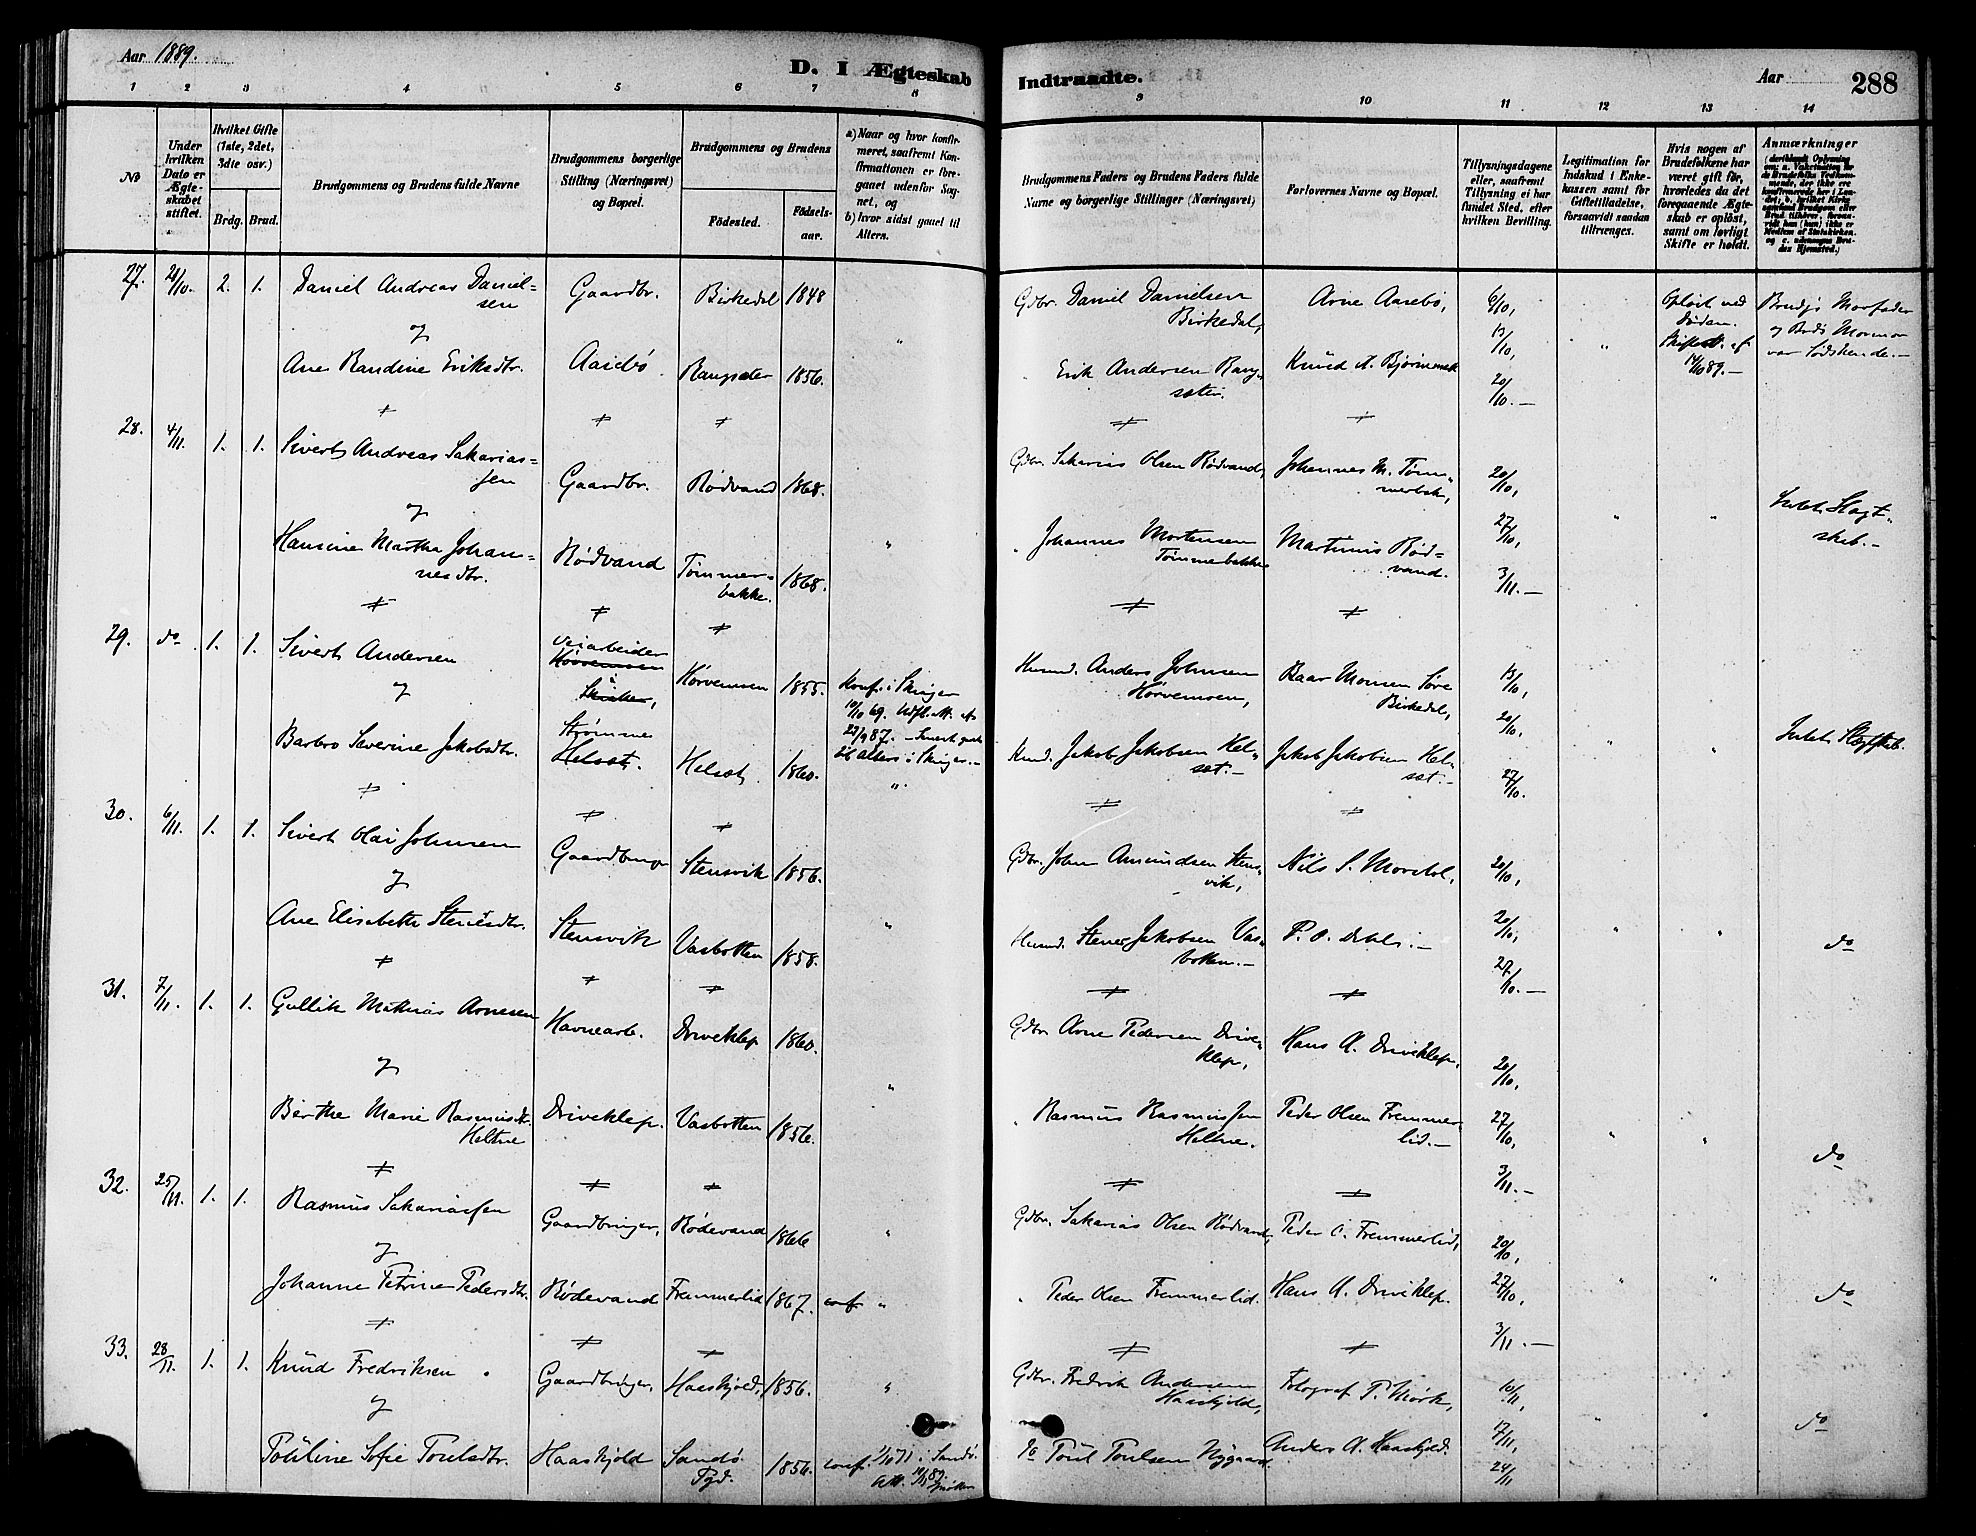 Aar 1889.
D. I Ægteskab Indtraadte.
Aar 288
1 2 3 4 5 6 7 8 9 10 11 12 13 14
No
Under hvilken Dato er Ægteskabet stiftet.
Hvilket Gifte (1ste, 2det, 3die osv.)
Brdg. Brud.
Brudgommens og Brudens fulde Navne
Brudgommens borgerlige Stilling (Næringsvei) og Bopæl.
Brudgommens og Brudens
Fødested. Fødselsaar.
a) Naar og hvor konfirmeret, saafremt Konfirmationen er foregaaet udenfor Sognet, og
b) hvor sidst gaaet til Alters.
Brudgommens Faders og Brudens Faders fulde Navne og borgerlige Stillinger (Næringsvei)
Forlovernes Navne og Bopæl.
Tillysningsdagene eller, saafremt Tillysning ei har fundet Sted, efter hvilken Bevilling.
Legitimation for Indskud i Enkekassen samt for Giftetilladelse, forsaavidt saadan tiltrænges.
Hvis nogen af Brudefolkene har været gift før, hvorledes da det foregaaende Ægteskab er opløst, samt om lovligt Skifte er holdt.
Anmærkninger
27. 21/10. 2. 1. Daniel Andreas Danielsen Gaardbr. Birkedal 1848 Gdbr. Daniel Danielsen Birkedal, Arne Aasebø, 6/10, 13/10, 20/10.— Opløst ved Døden. Skifteatt. af 14/10 89.— Brudgs Morfader og Bruds Mormor var Sødskende.—
og
Ane Randine Eriksdtr. Aasebø Rangsæter 1856. Erik Andersen Rangsæter. Knud A. Bjørnemek
28. 4/11. 1. 1. Sivert Andreas Sakariassen Gaardbr. Rødvand 1868. Gdbr. Sakarias Olsen Rødvand, Johannes M. Tømmerbak, 20/10, 27/10, 3/11.— Intet Slægtskab.—
og
Hansine Martha Johannesdtr. Rødvand Tømmerbakke. 1868. " Johannes Mortensen Tømmerbakke Martinus Rødvand.
29. do 1. 1. Sivert Andersen Veiarbeider Hørvemoen 1855. Konf. i Skinger 10/10 69. Udfl. Att. af 22/9 87. – Senest gaaet til Alters i Skinger.— Husmd. Anders Johnsen Hørvemoen, Baar Monsen Søre Birkedal, 13/10, 20/10, 27/10. Intet Slægtskab.
og
Barbro Severine Jakobsdtr. Strømme Helset. Helset 1860. Husmd. Jakob Jakobsen Helset.— Jakob Jakobsen Helset.—
30. 6/11. 1. 1. Sivert Olai Johnsen Gaardbruger Stensvik 1856. Gdbr. John Amundsen Stensvik, Nils S. Morstøl, 20/10, 20/10, 27/10.— do
og
Ane Elisabeth Stenersdtr. Stensvik Vasbotten 1858. Husmd. Stener Jakobsen Vasbotten.— P. O. Dehli.—
31. 7/11. 1. 1. Gullik Mathias Arnesen Havnearb. Driveklep 1860. Gdbr. Arne Pedersen Driveklep, Hans A. Driveklep, 20/10, 27/10, 3/11.— do
og
Berthe Marie Rasmusdtr. Heltne Driveklep. Vasbotten 1856. " Rasmus Rasmussen Heltne. Peder Olsen Fremmerlid.—
32. 25/11. 1. 1. Rasmus Sakariassen Gaardbruger, Rødevand 1866 Gdbr. Sakarias Olsen Rødvand, Peder O. Fremmerlid, 20/10, 27/10, 3/11.— do
og
Johanne Petrine Pedersdtr. Rødevand Fremmerlid 1867. conf " Peder Olsen Fremmerlid. Hans A. Driveklep.
33. 28/11. 1. 1. Knud Fredriksen Gaardbruger, Haaskjold, 1856. Gdbr. Fredrik Andersen Haaskjold, Fotograf P. Mørk, 10/11, 17/11, 24/11 do
og
Pouline Sofie Poulsdtr. Haaskjold Sandø Pgd. 1856. conf. 1/10 71 i Sandø. Att. Poul Poulsen Nygaard. Anders A. Haaskjold.